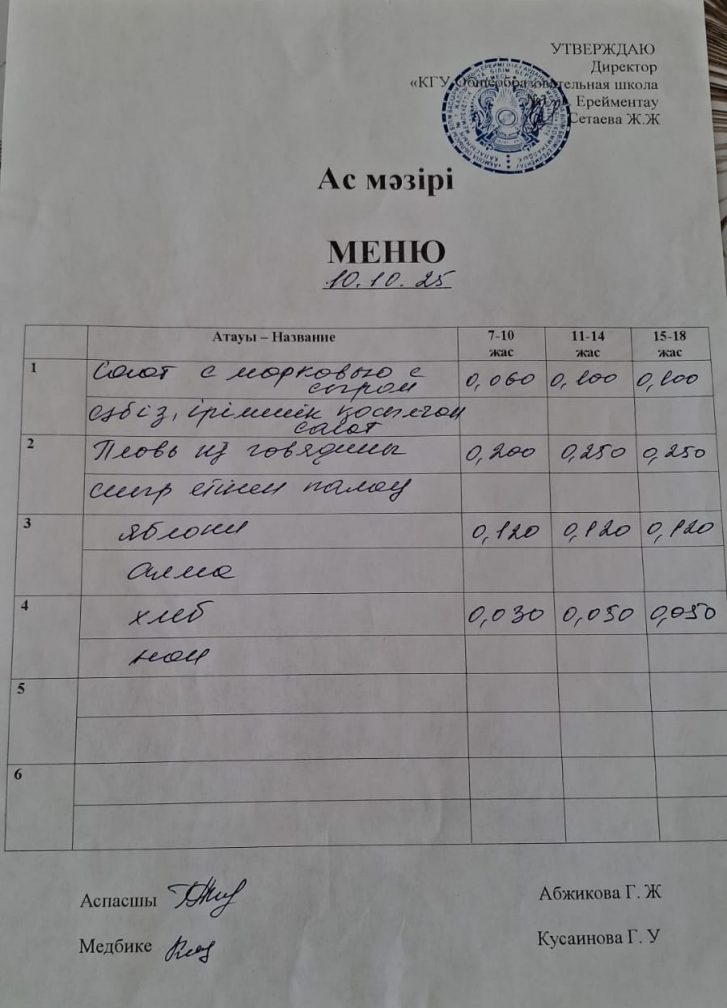 УТВЕРЖДАЮ
Директор
«КГУ Общеобразовательная школа
Ерейментау
Сетаева Ж.Ж
Ас мәзірі
МЕНЮ
10.10.25
Атауы – Название 7-10 жас 11-14 жас 15-18 жас
1 Салат с морковью с сыром 0,060 0,100 0,100
сәбіз, ірімшік қосылған салат
2 Пловь из говядины 0,200 0,250 0,250
сиыр етінен палау
3 яблоки 0,120 0,120 0,120
алма
4 хлеб 0,030 0,050 0,050
нан
5
6
Аспасшы Абжикова Г. Ж
Медбике Кусаинова Г. У